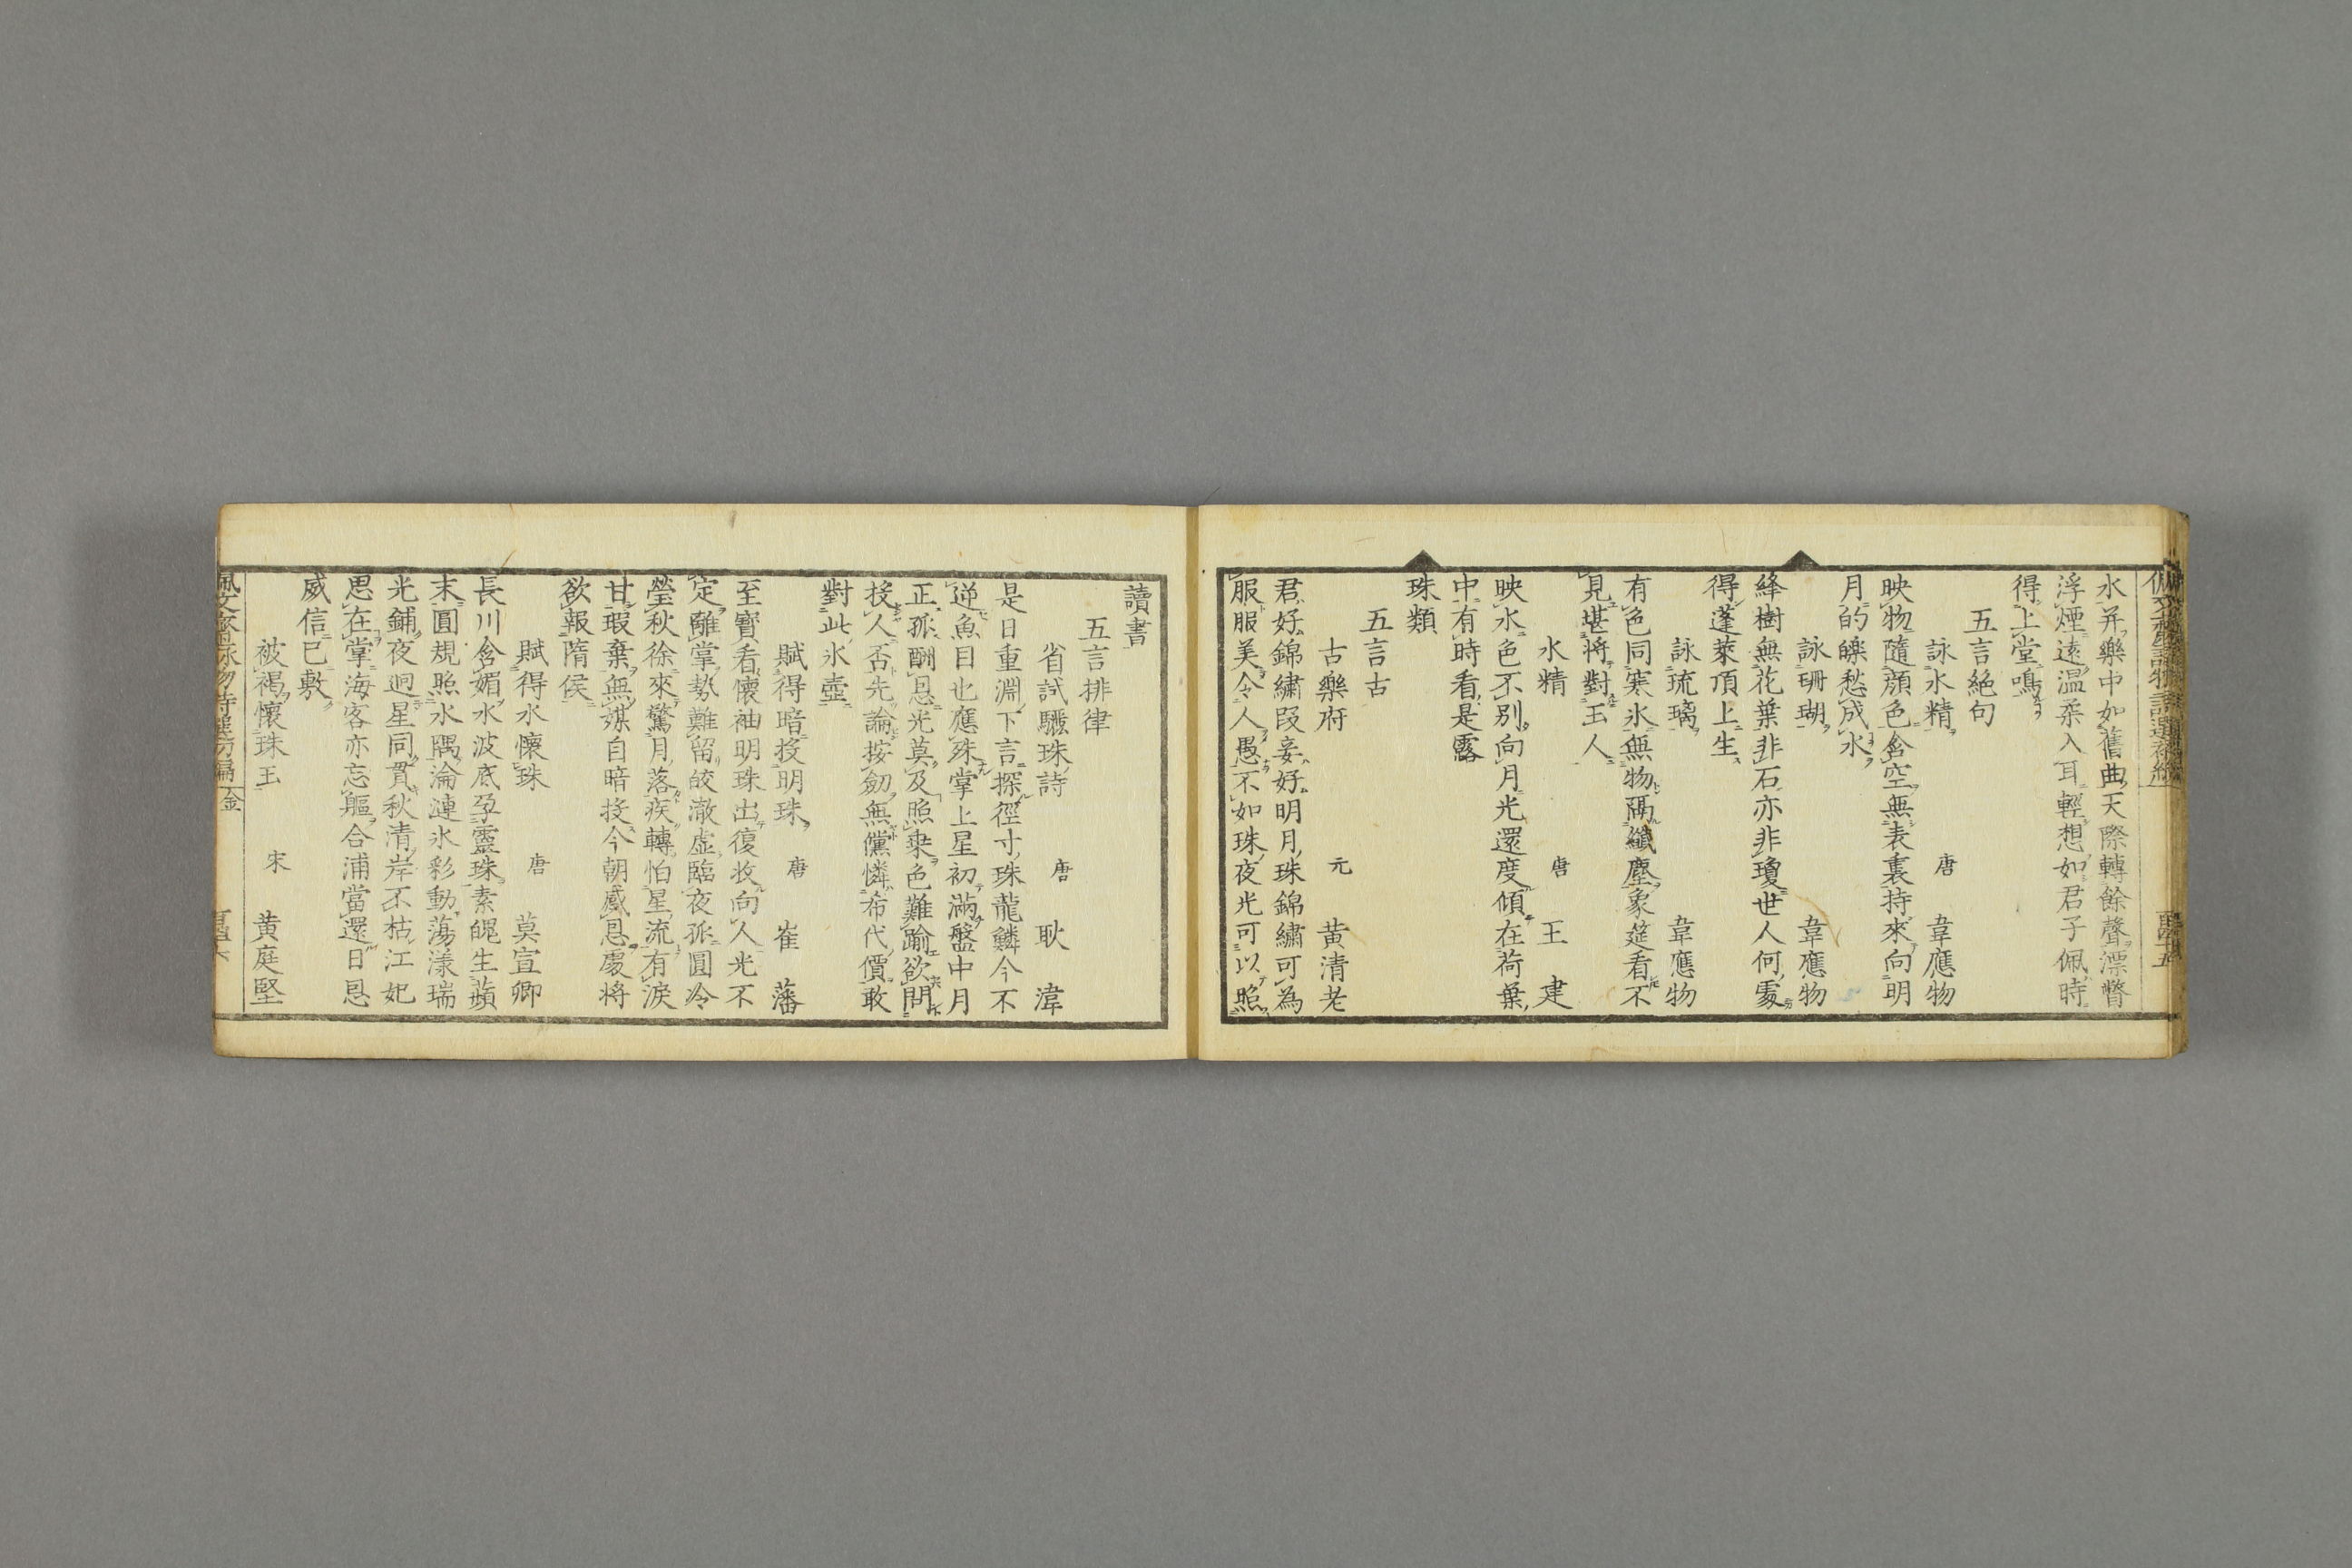 水并樂中如舊曲天際轉餘聲漂瞥
浮煙遠溫柔入耳輕想如君子佩時
得上堂鳴
五言絕句
詠水精 唐 韋應物
映物隨顏色含空無表裏持來向明
月的皪愁成水
詠珊瑚 韋應物
絳樹無花葉非石亦非瓊世人何處
得蓬萊頂上生
詠琉璃 韋應物
有色同寒氷無物隔纖塵象筵看不
見堪將對玉人
水精 唐 王建
映水色不別向月光還度傾在荷葉
中有時看是露
珠類
五言古
古樂府 元 黃清老
君好錦繡段妾好明月珠錦繡可為
服服美令人愚不如珠夜光可以照
讀書
五言排律
省試驪珠詩 唐 耿湋
是日重淵下言探徑寸珠龍鱗今不
逆魚目也應殊掌上星初滿盤中月
正孤酬恩光莫及照乗色難踰欲問
投人否先論按劒無儻憐希代價敢
對此氷壺
賦得暗投明珠 唐 崔藩
至寶看懷袖明珠出復收向人光不
定離掌勢難留皎澈虛臨夜孤圓冷
瑩秋徐來驚月落疾轉怕星流有淚
甘瑕棄無媒自暗投今朝感恩處將
欲報隋侯
賦得水懷珠 唐 莫宣卿
長川含媚水波底孕靈珠素魄生蘋
末圓規照水隅淪漣氷彩動蕩漾瑞
光鋪夜迥星同貫秋清岸不枯江妃
思在掌海客亦忘軀合浦當還日恩
威信已敷
被褐懷珠玉 宋 黄庭堅